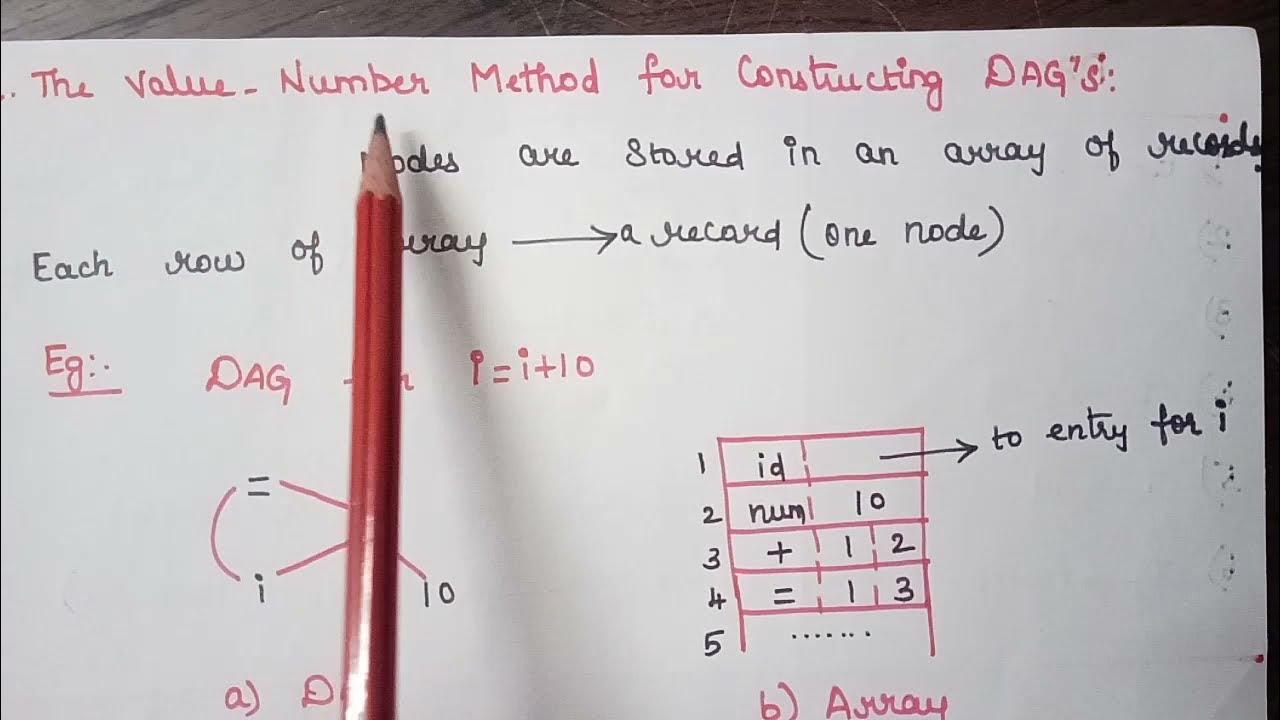 . The Value - Number Method for Constructing DAG's:
are stored in an array of records
Each row of → a record (one node)
Eg:. DAG i=i+10
=
i
10
1 id → to entry for i
2 num 10
3 + 1 2
4 = 1 3
5 .......
a)
b) Array